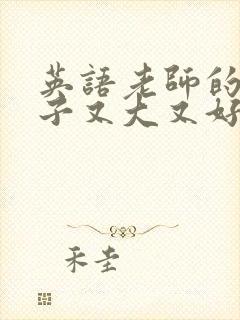 英語老師的
子又大又好
禾圭